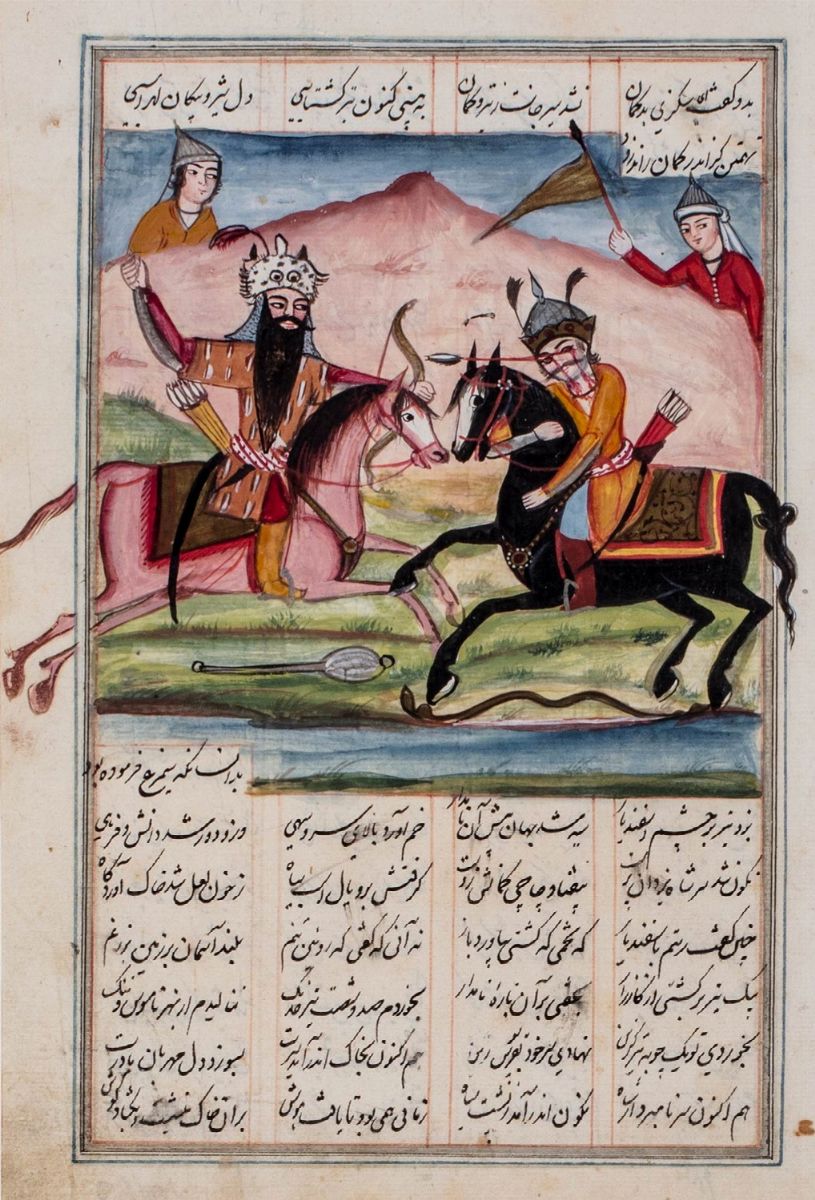 بدو گفت کای سگزی بدگمان نشد سیر جانت ز تیر و کمان به بینی کنون تیر گشتاسبی دل شیر و پیکان لهراسبی
تهمتن گز اندر کمان راند زود
بدانسانکه سیمرغ فرموده بود
بزد تیر بر چشم اسفندیار سیه شد جهان پیش آن نامدار خم آورد بالای سرو سهی وزو دور شد دانش و فرهی
نگون شد سر شاه یزدان پرست بیفتاد چاچی کمانش ز دست گرفتش بر و یال اسب سیاه ز خون لعل شد خاک آوردگاه
چنین گفت رستم باسفندیار که تخمی که کشتی بیاورد بار نه آنی که گفتی که روئین تنم بلند آسمان بر زمین بر زنم
بیک تیر برگشتی از کارزار بخفتی بر آن باره نامدار بخوردم صد و شصت تیر خدنگ ننالیدم از بهر ناموس و ننگ
بخوردی تو یک چوبه تیر گزین نهادی سر خود بقربوس زین هم اکنون بخاک اندر آید سرت بسوزد دل مهربان مادرت
هم اکنون سر نامبردار شاه نگون اندر آمد ز پشت سیاه زمانی همی بود تا یافت هوش بر آن خاک بنشست و بگشاد گوش